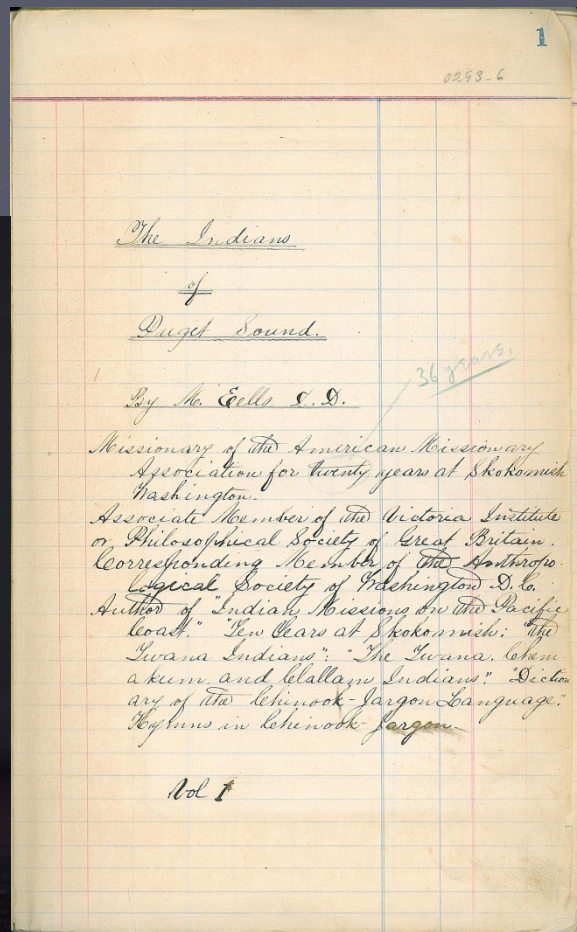 1
0293-6
The Indians
of
Puget Sound.
36 years.
By M. Eells D.D.
Missionary of the American Missionary
Association for twenty years at Skokomish
Washington.
Associate Member of the Victoria Institute
or Philosophical Society of Great Britain.
Corresponding Member of the Anthropo
logical Society of Washington D.C.
Author of "Indian Missions on the Pacific
Coast." "Ten Years at Skokomish: "The
Twana Indians": "The Twana, Chem-
akum, and Clallam Indians": "Diction
ary of the Chinook-Jargon Language":
Hymns in Chinook Jargon.
Vol 1